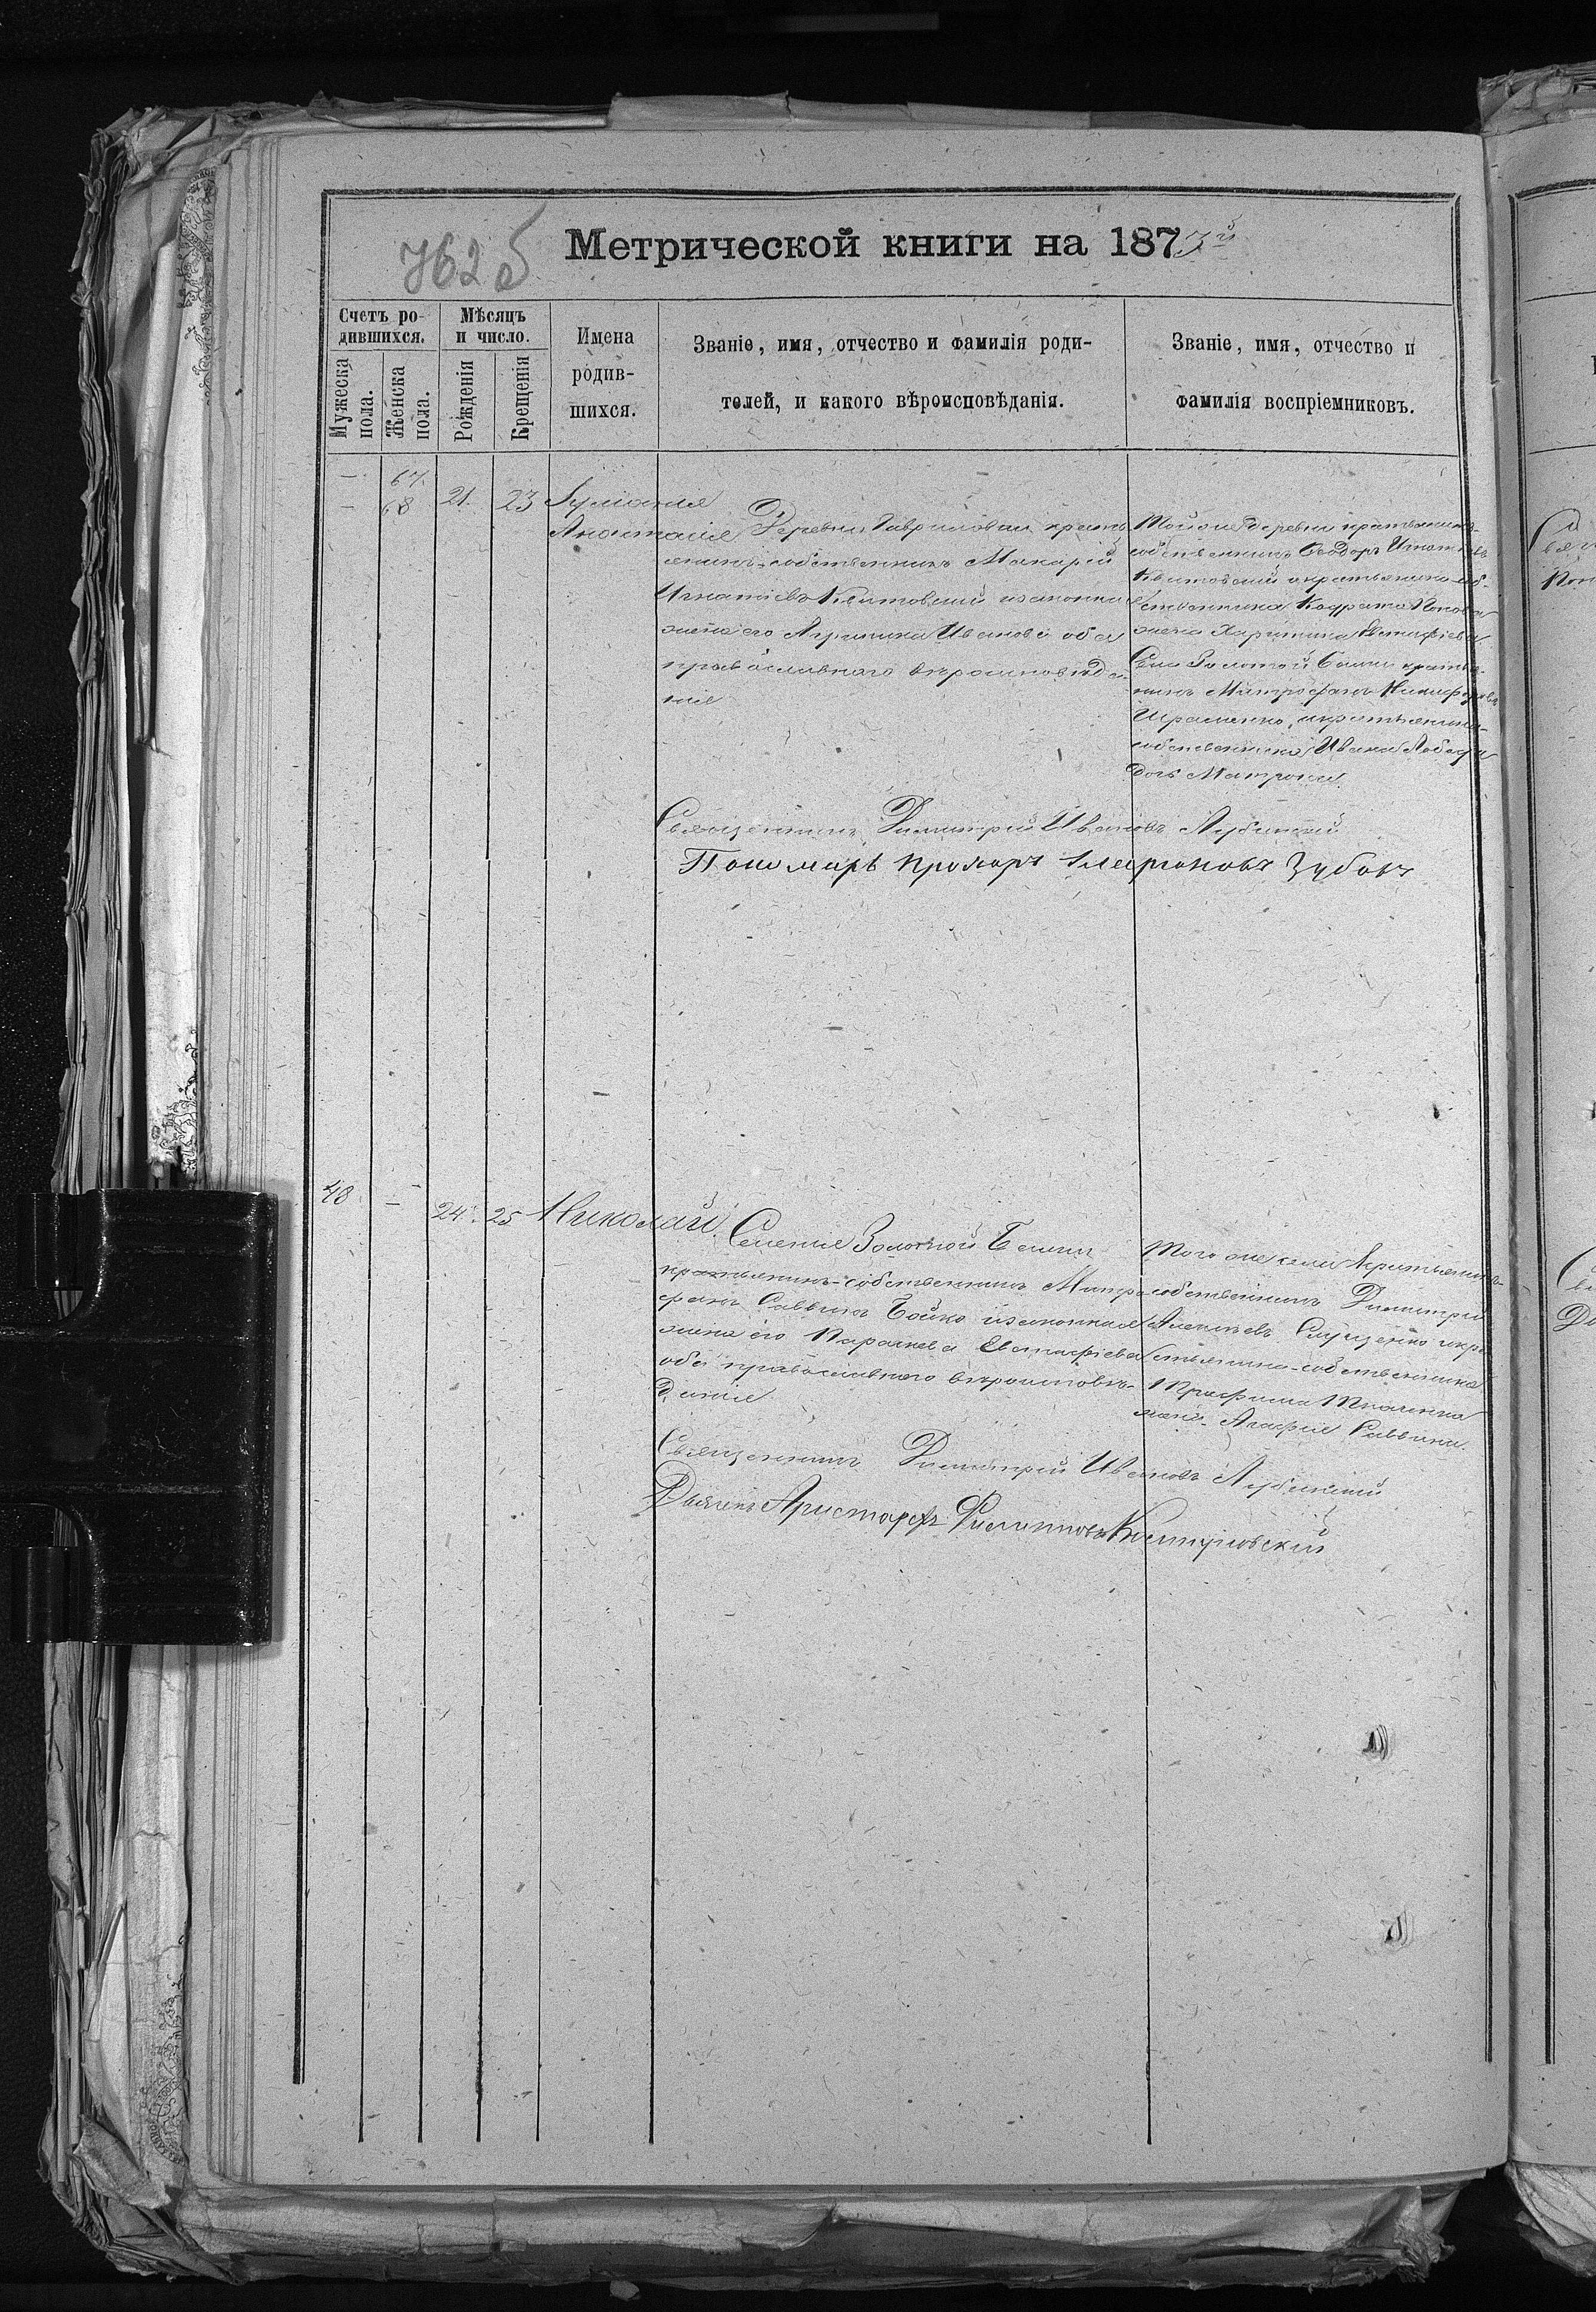 762 б
Метрической книги на 1873й
Счетъ ро-
дившихся.
Мѣсяцъ
и число.
Мужеска
пола.
Женска
пола.
Рожденія
Крещенія
Имена
родив-
шихся.
Званіе, имя, отчество и фамилія роди-
телей, и какого вѣроисповѣданія.
Званіе, имя, отчество и
фамилія воспріемниковъ.
— 67.
— 68 21. 23 Іуліанія
Анастасія
Деревни Гавриловки кресть
янинъ-собственникъ Макарій
Игнатіевъ Квитовскій и законная
жена его Агрипина Иванова оба
православнаго вѣроисповѣда-
нія
Той же деревни крестьянинъ-
собственникъ Феодоръ Игнатіевъ
Квитовскій и крестьянина-соб-
ственника Кодрата Попова
жена Харитина Евстафіева
Села Золотой Балки крестья-
нинъ Митрофанъ Никифоровъ
и крестьянина-
собственника Ивана
дочь Матрона.
Священникъ Димитрій Ивановъ
Пономарь Прохоръ Зубовъ
48 — 24. 25 Николай.
Селенія Золотой Балки
крестьянинъ-собственникъ Митро
фанъ Саввинъ Бойко и законная
жена его Параскева Евстафіева
оба православнаго вѣроисповѣ-
данія
Того же села крестьянинъ-
собственникъ Димитрій
Алексѣевъ Слущенко и кре
стьянина-собственника
Трофима Ткаченка
жена Агафія Саввина.
Священникъ Димитрій Ивановъ
Дьячекъ Аристархъ Филиповъ